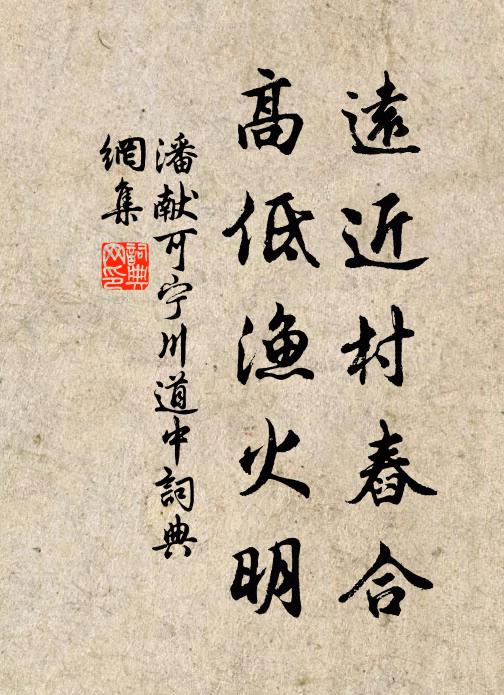 遠近村舂合
高低漁火明
潘献可宁川道中詞典
網集
詞典
网印